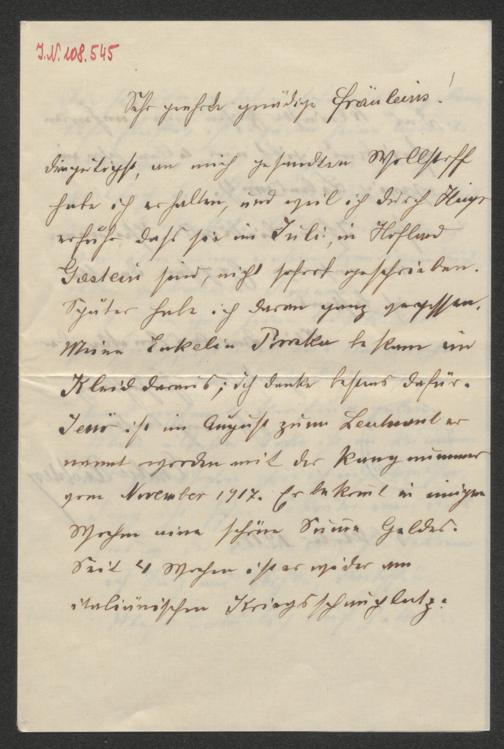 I.N. 108.545
Sehr geehrte gnädige Fräulein!
den gütigst, an mich gesandten Wollstoff
habe ich erhalten, und weil ich durch
erfuhr dass sie im Juli, in Hofland
Gastein sind, nicht sofort geschrieben.
Später habe ich daran ganz vergessen.
Meine Enkelin bekam ein
Kleid daraus; ich danke bestens dafür.
Jenö ist im August zum Leutnant er
nannt worden mit der Rangnummer
vom November 1917. Er bekomt in einigen
Wochen eine schöne Summe Geldes.
Seit 4 Wochen ist er wider am
italiänischen Kriegsschauplatz.